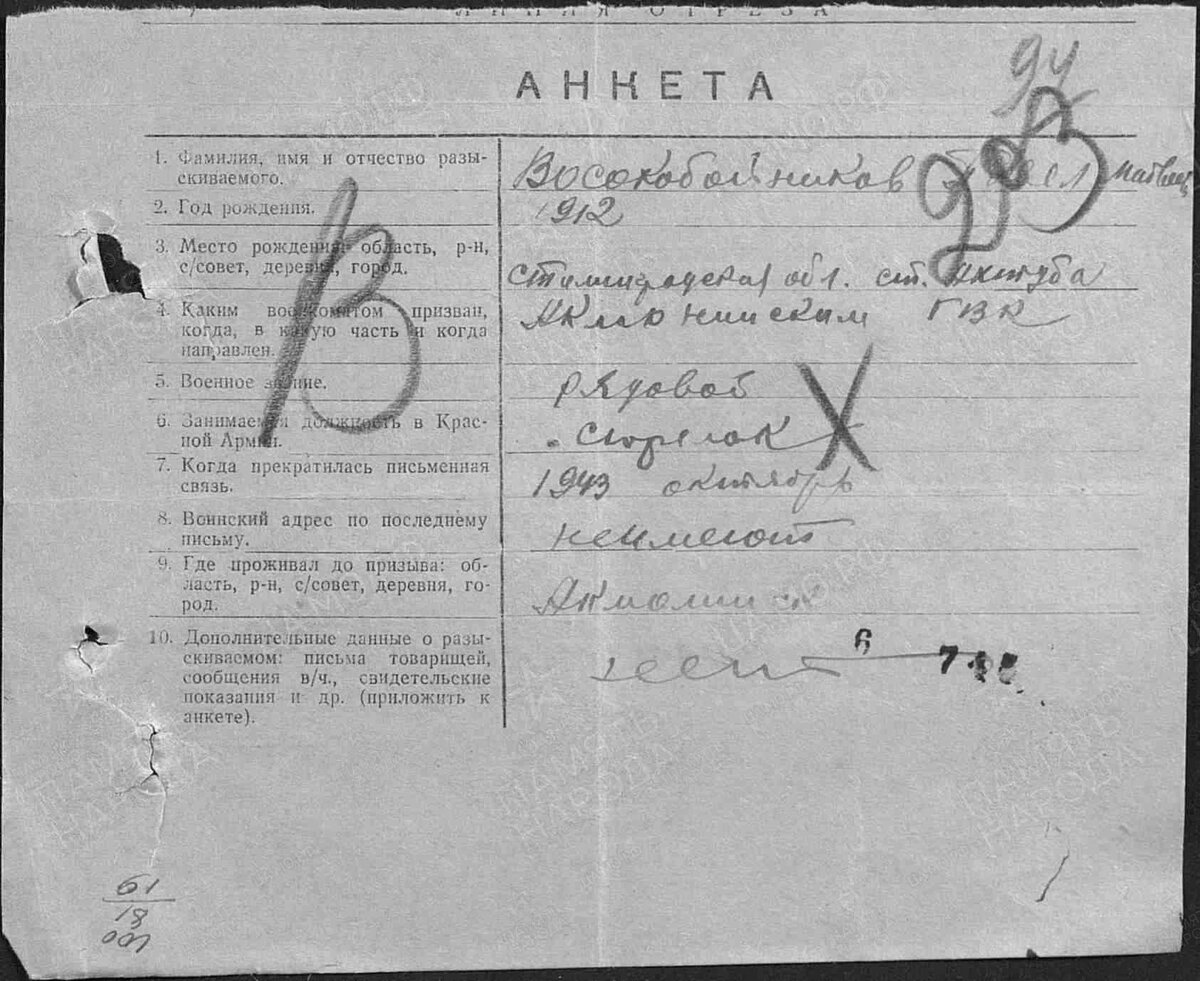 ЛИНИЯ ОТРЕЗА
АНКЕТА
94
203
1. Фамилия, имя и отчество разы-
скиваемого.
Воскобойников Матвеев
2. Год рождения.
1912
3. Место рождения: область, р-н,
с/совет, деревня, город.
Сталинградская обл. ст. Ахтуба
4. Каким военкоматом призван,
когда, в какую часть и когда
направлен.
Акмолинским ГВК
5. Военное звание.
рядовой
6. Занимаемая должность в Крас-
ной Армии.
стрелок
7. Когда прекратилась письменная
связь.
1943 октябрь
8. Воинский адрес по последнему
письму.
неимеют
9. Где проживал до призыва: об-
ласть, р-н, с/совет, деревня, го-
род.
Акмолинск
10. Дополнительные данные о разы-
скиваемом: письма товарищей,
сообщения в/ч., свидетельские
показания и др. (приложить к
анкете).
В
Х
61
18
ПАМЯТЬ
НАРОДА
ПАМЯТЬ
НАРОДА
ПАМЯТЬ
НАРОДА